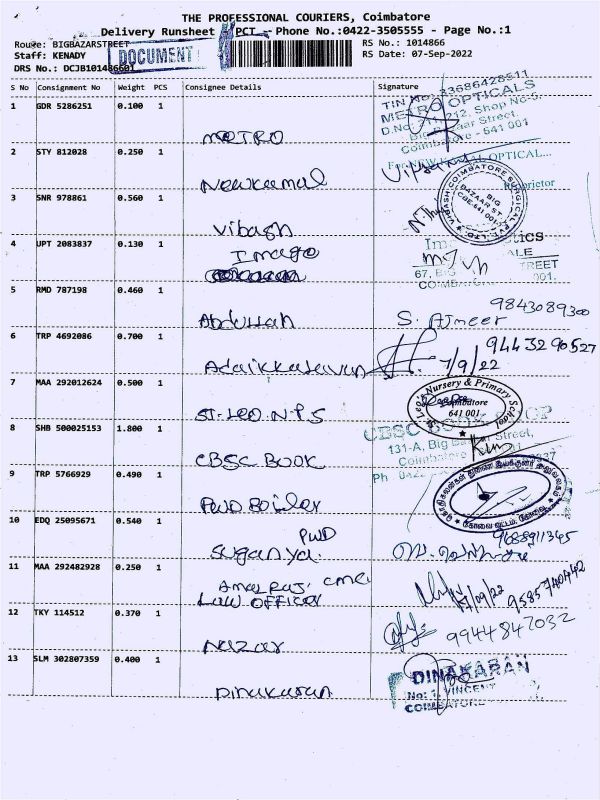 THE PROFESSIONAL COURIERS, Coimbatore
Delivery Runsheet - PCT - Phone No.:0422-3505555 - Page No.:1
Route: BIGBAZARSTREET
RS No.: 1014866
Staff: KENADY
DOCUMENT
RS Date: 07-Sep-2022
DRS No.: DCJB101486601
S No Consignment No Weight PCS Consignee Details Signature
1 GDR 5286251 0.100 1
TIN No: 33686428511
METRO OPTICALS
D.No: 211,212, Shop No-5,
Big Bazaar Street,
Coimbatore - 641 001
METRO
2 STY 812028 0.250 1
For NEW KAMAL OPTICAL...
Proprietor
Newkamal
3 SNR 978861 0.560 1
VIBASH COIMBATORE SURGICAL PVT. LTD.
BIG BAZAAR ST.
CBE-641 001
Vibash
4 UPT 2083837 0.130 1
Imago
67, BIG STREET
5 RMD 787198 0.460 1
9843089300
Abdullah
S. Ajmeer
6 TRP 4692086 0.700 1
9443290527
Adaikkalavan
7/9/22
7 MAA 292012624 0.500 1
St. Leo's Nursery & Primary School
Coimbatore
641 001
ST. LEO. N.P.S
8 SHB 500025153 1.800 1
CBSC BOOK SHOP
131-A, Big Bazaar Street,
Coimbatore
CBSC BOOK
9 TRP 5766929 0.490 1
PWD Boiler
10 EDQ 25095671 0.540 1
PWD
Suganya.
9688911345
11 MAA 292482928 0.250 1
Amalraj. CMC
Law Officer
7/09/22
9585740442
12 TKY 114512 0.370 1
9944847032
Nazar
13 SLM 302807359 0.400 1
DINAKARAN
No: 1, VINCENT
COIMBATORE
Dinakaran